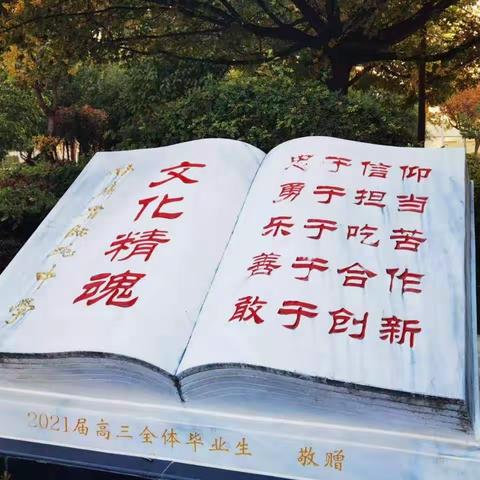 中学
文化精魂
忠于信仰
勇于担当
乐于吃苦
善于合作
敢于创新
2021届高三全体毕业生 敬赠